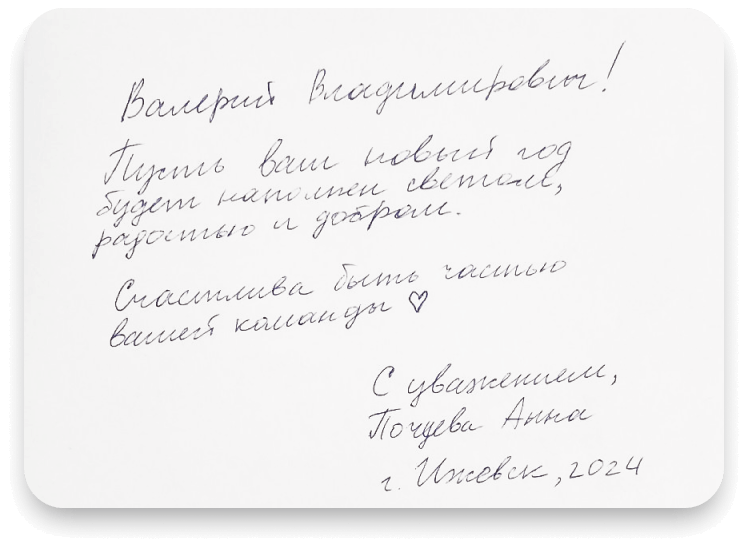 Валерий Владимирович!
Пусть ваш новый год
будет наполнен светом,
радостью и добром.
Счастлива быть частью
вашей команды ♡
С уважением,
Анна
г. Ижевск, 2024